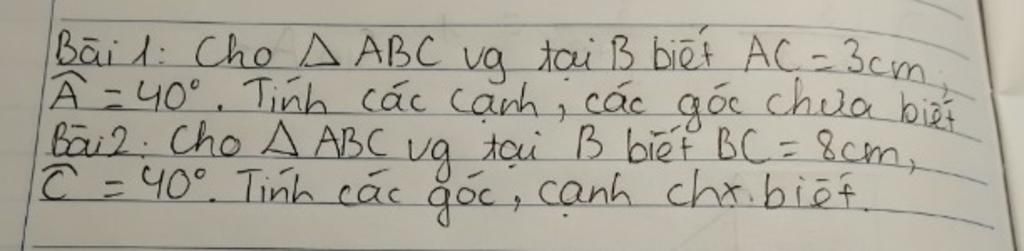 Bài 1: Cho △ ABC vg tại B biết AC = 3cm,
Â = 40°. Tính các cạnh, các góc chưa biết
Bài 2: Cho △ ABC vg tại B biết BC = 8cm,
Ĉ = 40°. Tính các góc, cạnh chx biết.